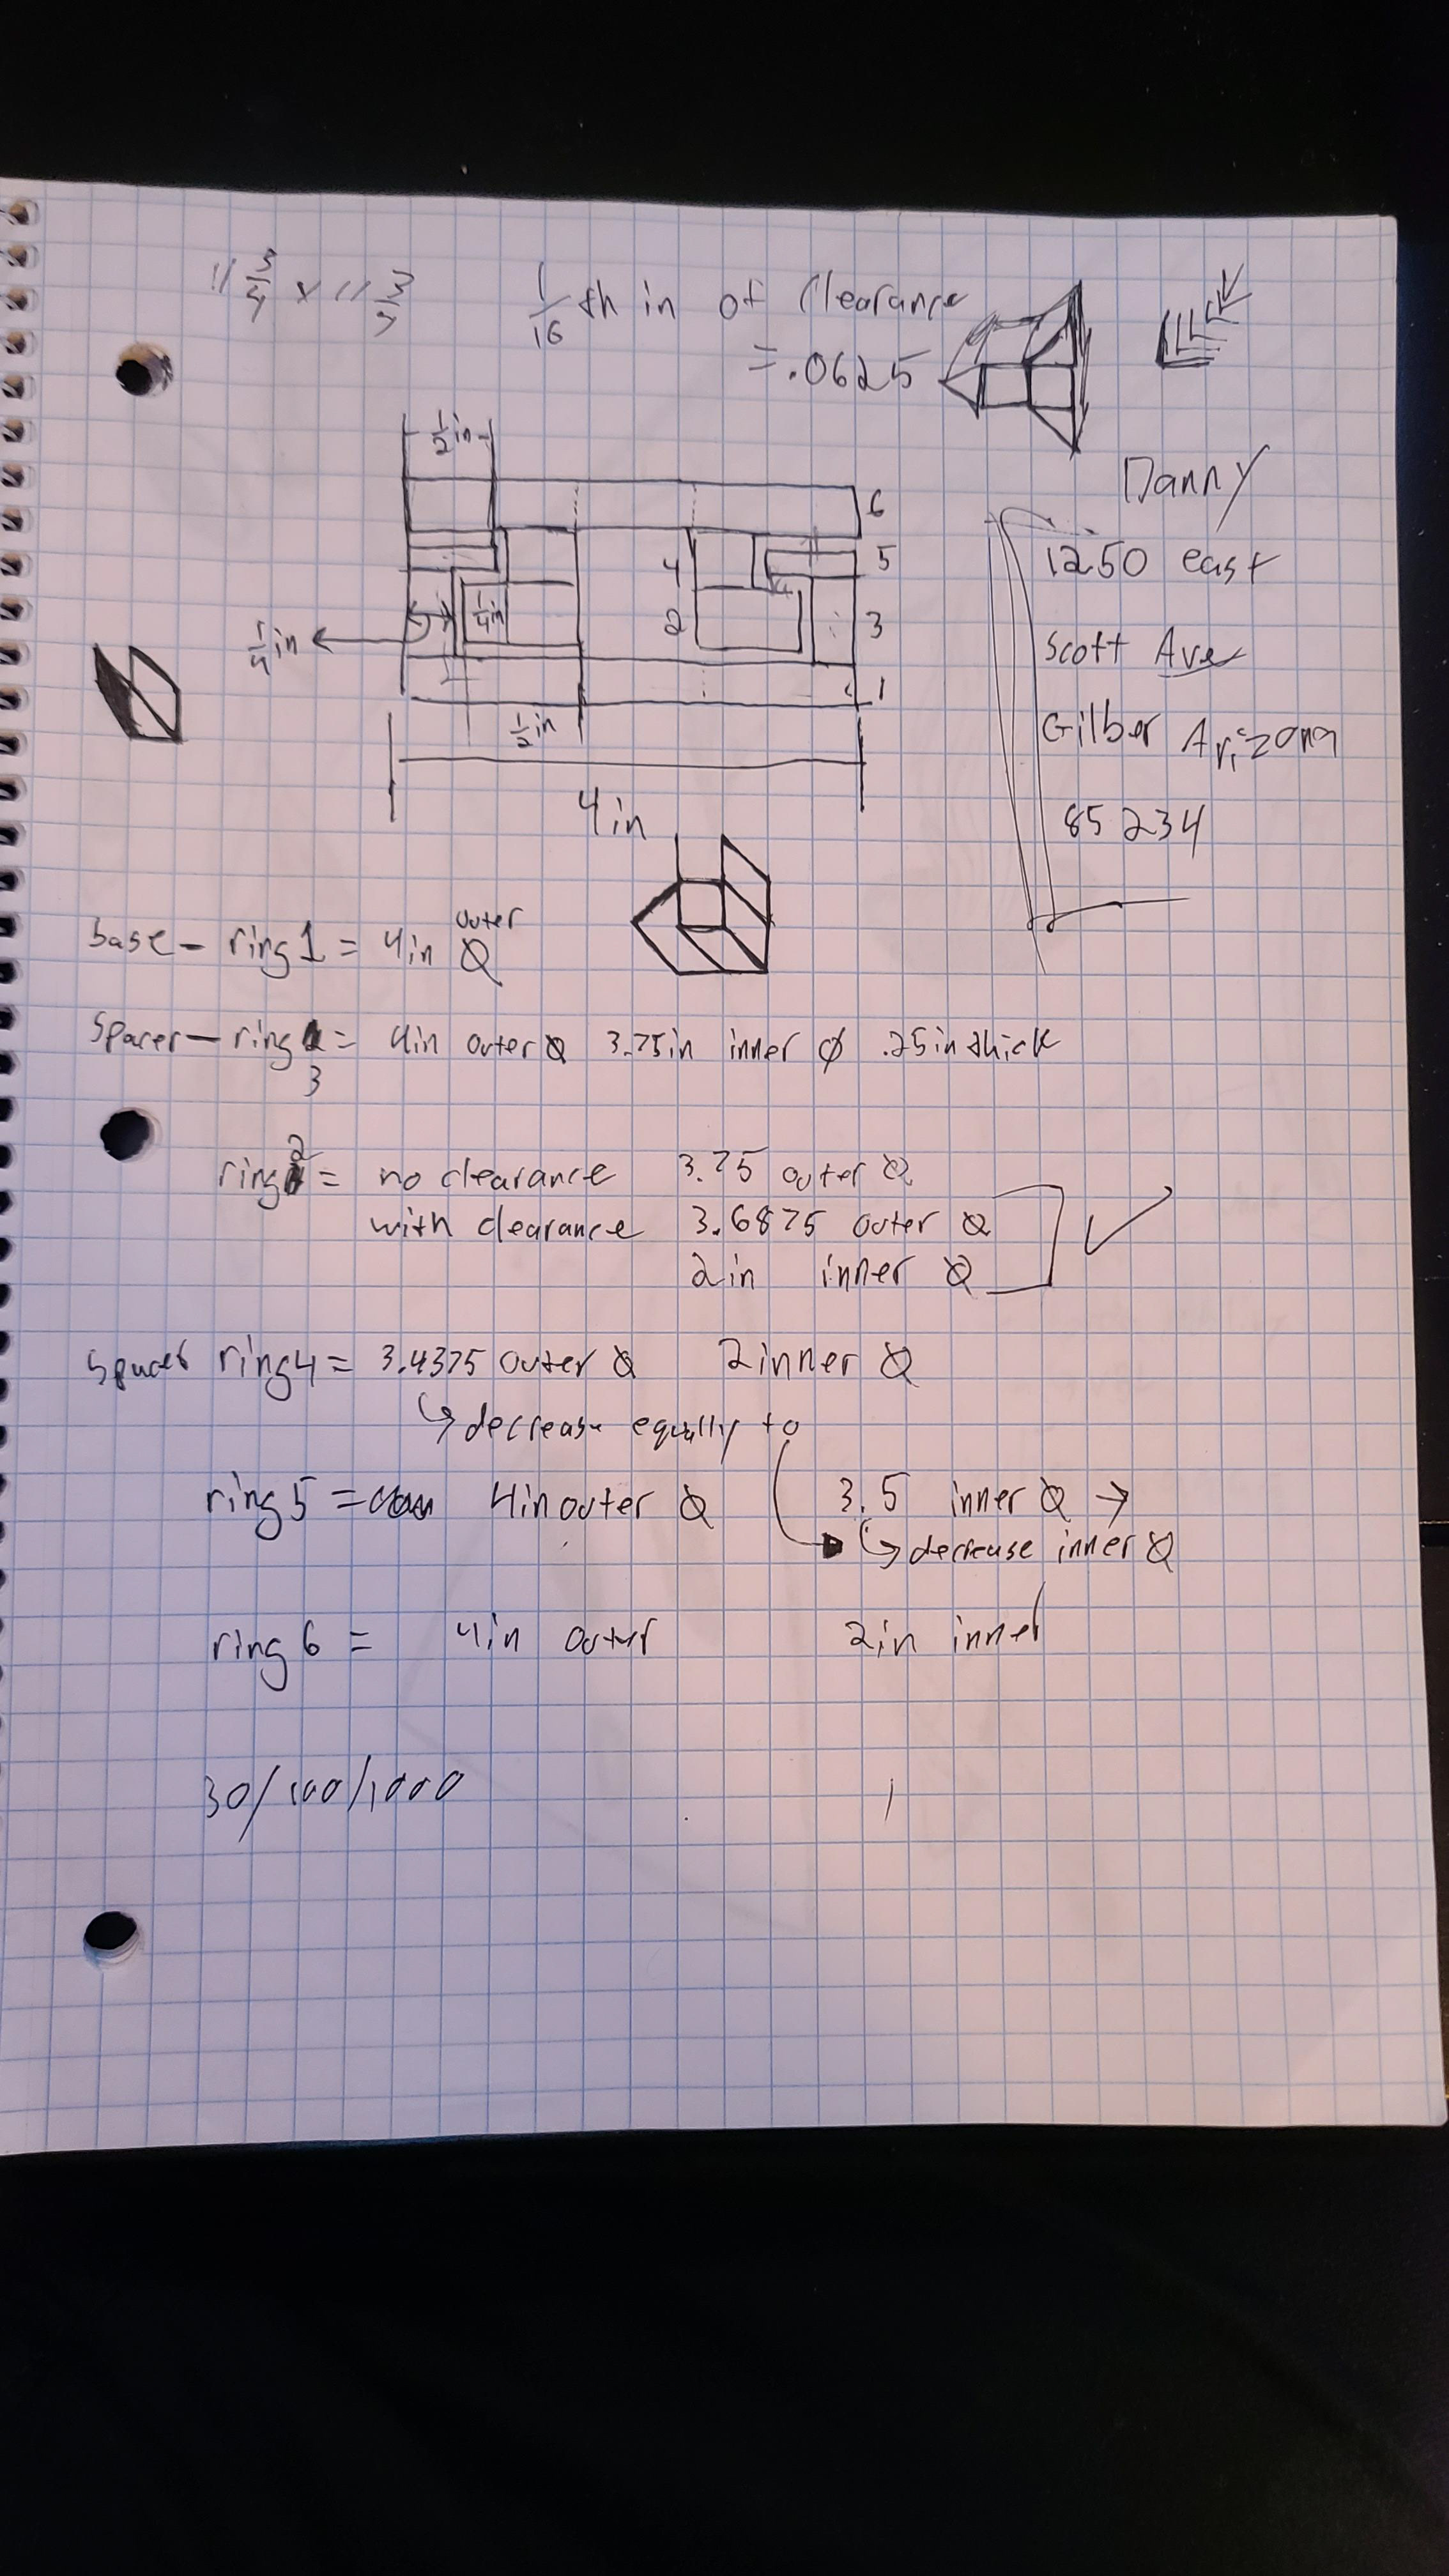 11 3/4 x 11 3/4
1/16 th in of Clearance
= .0625
1/2 in
6
4
5
2
3
1/4 in
1/4 in
1
1/2 in
4 in
Danny
1250 east
Scott Ave
Gilber Arizona
85234
base - ring 1 = 4in outer Ø
Spacer - ring 3 = 4in outer Ø 3.75in inner Ø .25in thick
ring 2 = no clearance 3.75 outer Ø
with clearance 3.6875 outer Ø
2in inner Ø
Spacer ring 4 = 3.4375 outer Ø 2 inner Ø
decrease equally to
ring 5 = 4in outer Ø 3.5 inner Ø →
decrease inner Ø
ring 6 = 4in outer 2in inner
30/100/1000